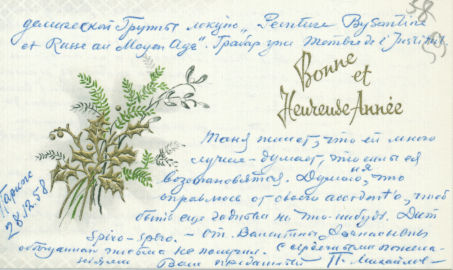 демической Группы лекцию „Peinture Bysantine
et Russe au Moyen Age“. Грабар уже Membre de l'Institut.
Bonne
et
Heureuse Année
Таня пишет, что ей много
лучше - думает, что силы ея
возстановятся. Думаю, что
оправлюсь от своего accident'а, чтоб
быть еще годным на что-нибудь. Dum
Spiro - Spero. - От Валентины
обещанная письма не получил. С сердечными пожела-
ниями Ваш преданный П. Михайлов
Париж
28.12.58